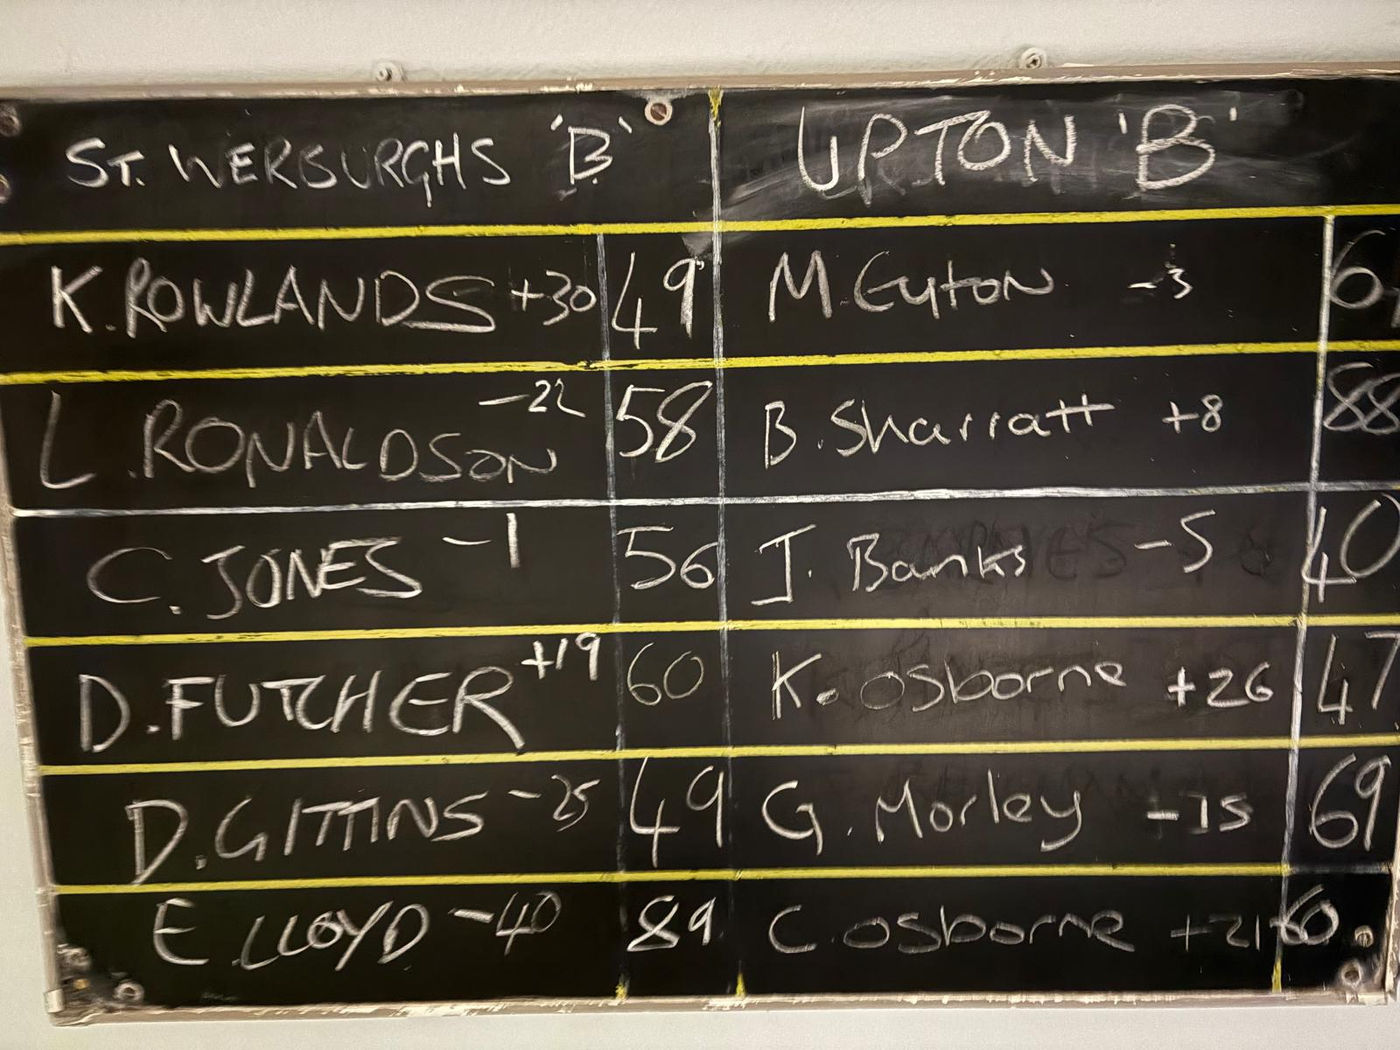 ST. WERBURGHS 'B' UPTON 'B'
K. ROWLANDS +30 49 M. Eyton -3
L. RONALDSON -22 58 B. Sharratt +8 88
C. JONES -1 56 J. Banks -5 40
D. FUTCHER +19 60 K. Osborne +26 47
D. GITTINS -25 49 G. Morley -15 69
E LLOYD -40 89 C. Osborne +21 60